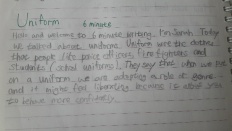 Uniform 6 minute
Hello and welcome to 6 minute writing. I'm Sarah. Today
we talked about uniforms. Uniform are the clothes
that people like police officers, fire fighters and
students (school uniforms). They say that when we put
on a uniform, we are adopting a role it gives
and it might feel liberating because it allows you
to behave more confidently.